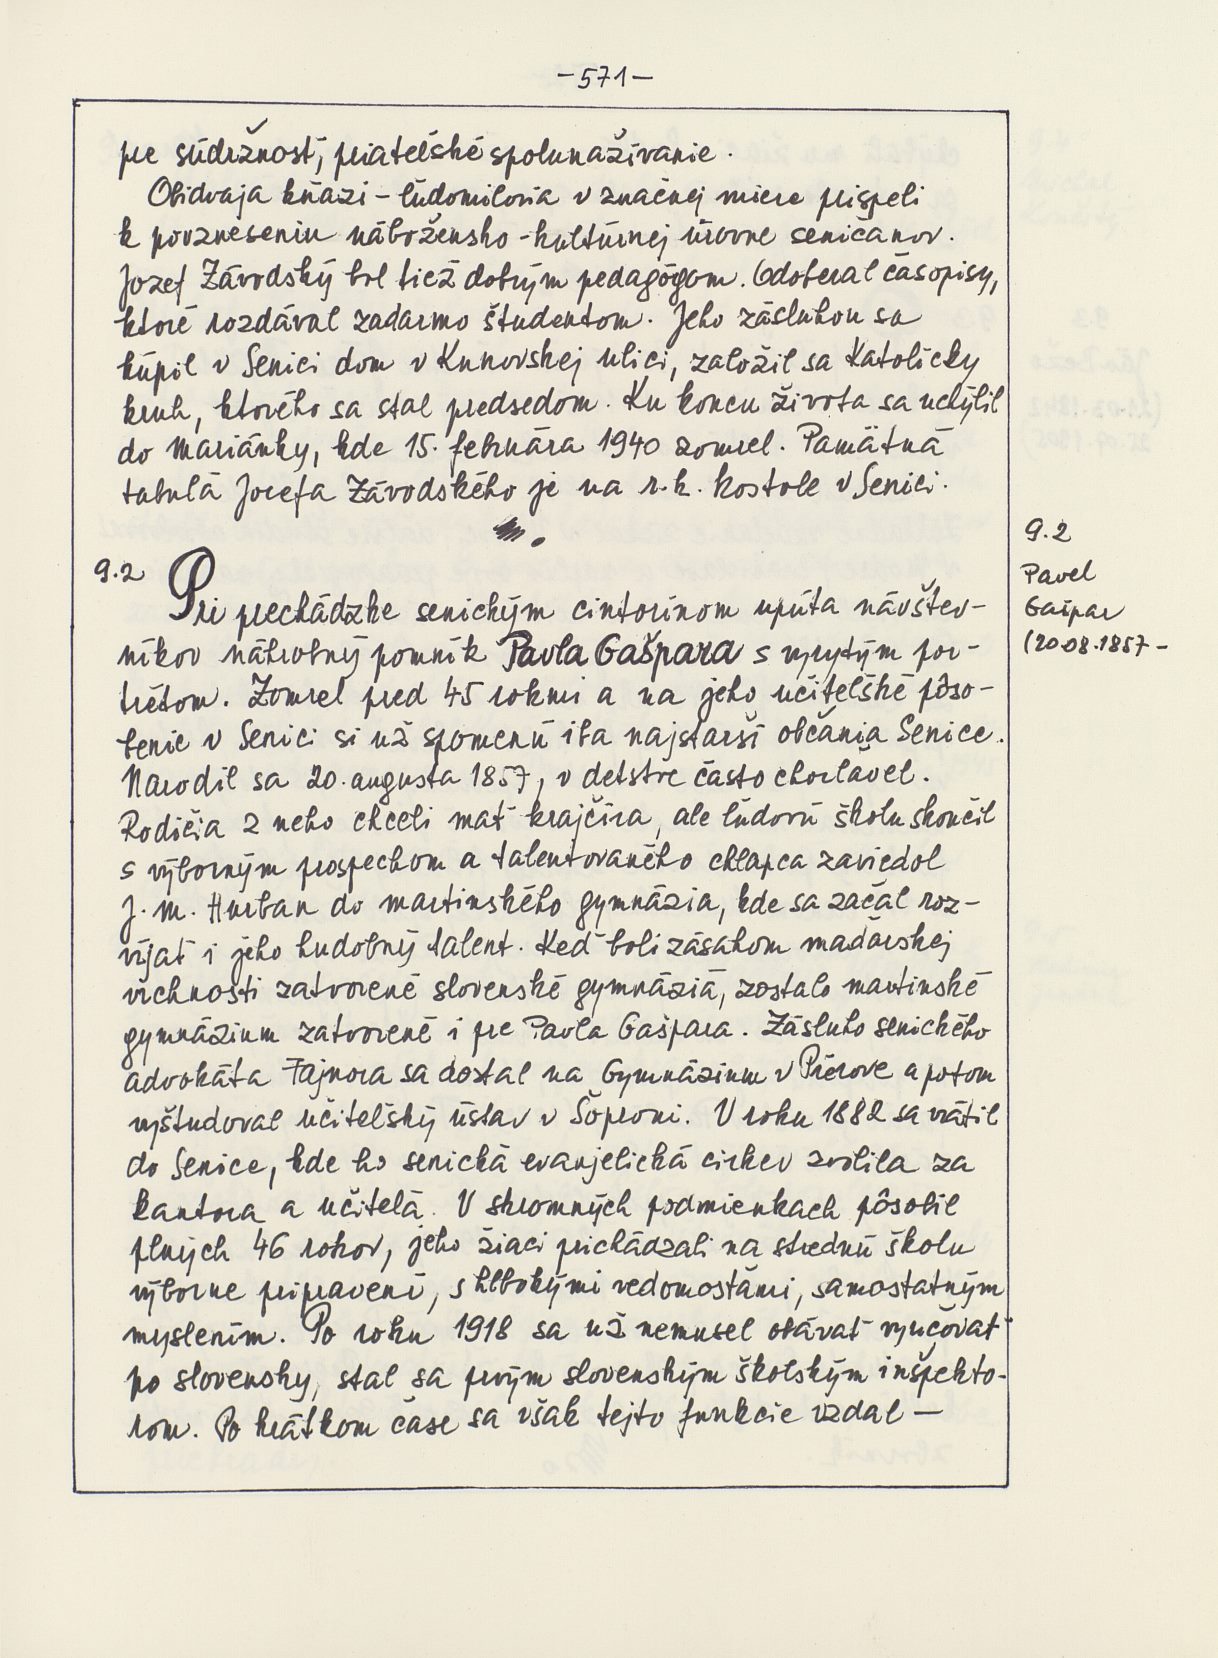 -571-
pre súdržnosť, priateľské spolunažívanie.
Obidvaja kňazi - ľudomilovia v značnej miere prispeli
k povzneseniu nábožensko-kultúrnej úrovne seničanov.
Jozef Závodský bol tiež dobrým pedagógom. Odoberal časopisy,
ktoré rozdával zadarmo študentom. Jeho zásluhou sa
kúpil v Senici dom v Kunovskej ulici, založil sa Katolícky
kruh, ktorého sa stal predsedom. Ku koncu života sa uchýlil
do Mariánky, kde 15. februára 1940 zomrel. Pamätná
tabuľa Jozefa Závodského je na r.k. kostole v Senici.
9.2
Pavel
Gašpar
(20.08.1857-
9.2 Pri prechádzke senickým cintorínom upúta návštev-
níkov náhrobný pomník Pavla Gašpara s vyrytým por-
trétom. Zomrel pred 45 rokmi a na jeho učiteľské pôso-
benie v Senici si už spomenú iba najstarší občania Senice.
Narodil sa 20. augusta 1857, v detstve často chorľavel.
Rodičia z neho chceli mať krajčíra, ale ľudovú školu skončil
s výborným prospechom a talentovaného chlapca zaviedol
J. M. Hurban do martinského gymnázia, kde sa začal roz-
víjať i jeho hudobný talent. Keď boli zásahom maďarskej
vrchnosti zatvorené slovenské gymnáziá, zostalo martinské
gymnázium zatvorené i pre Pavla Gašpara. Zásluho senického
advokáta Fajnora sa dostal na Gymnázium v Přerove a potom
vyštudoval učiteľský ústav v Šoproni. V roku 1882 sa vrátil
do Senice, kde ho senická evanjelická cirkev zvolila za
kantora a učiteľa. V skromných podmienkach pôsobil
plných 46 rokov, jeho žiaci prichádzali na strednú školu
výborne pripravení, s hlbokými vedomosťami, samostatným
myslením. Po roku 1918 sa už nemusel obávať vyučovať
po slovensky, stal sa prvým slovenským školským inšpekto-
rom. Po krátkom čase sa však tejto funkcie vzdal -